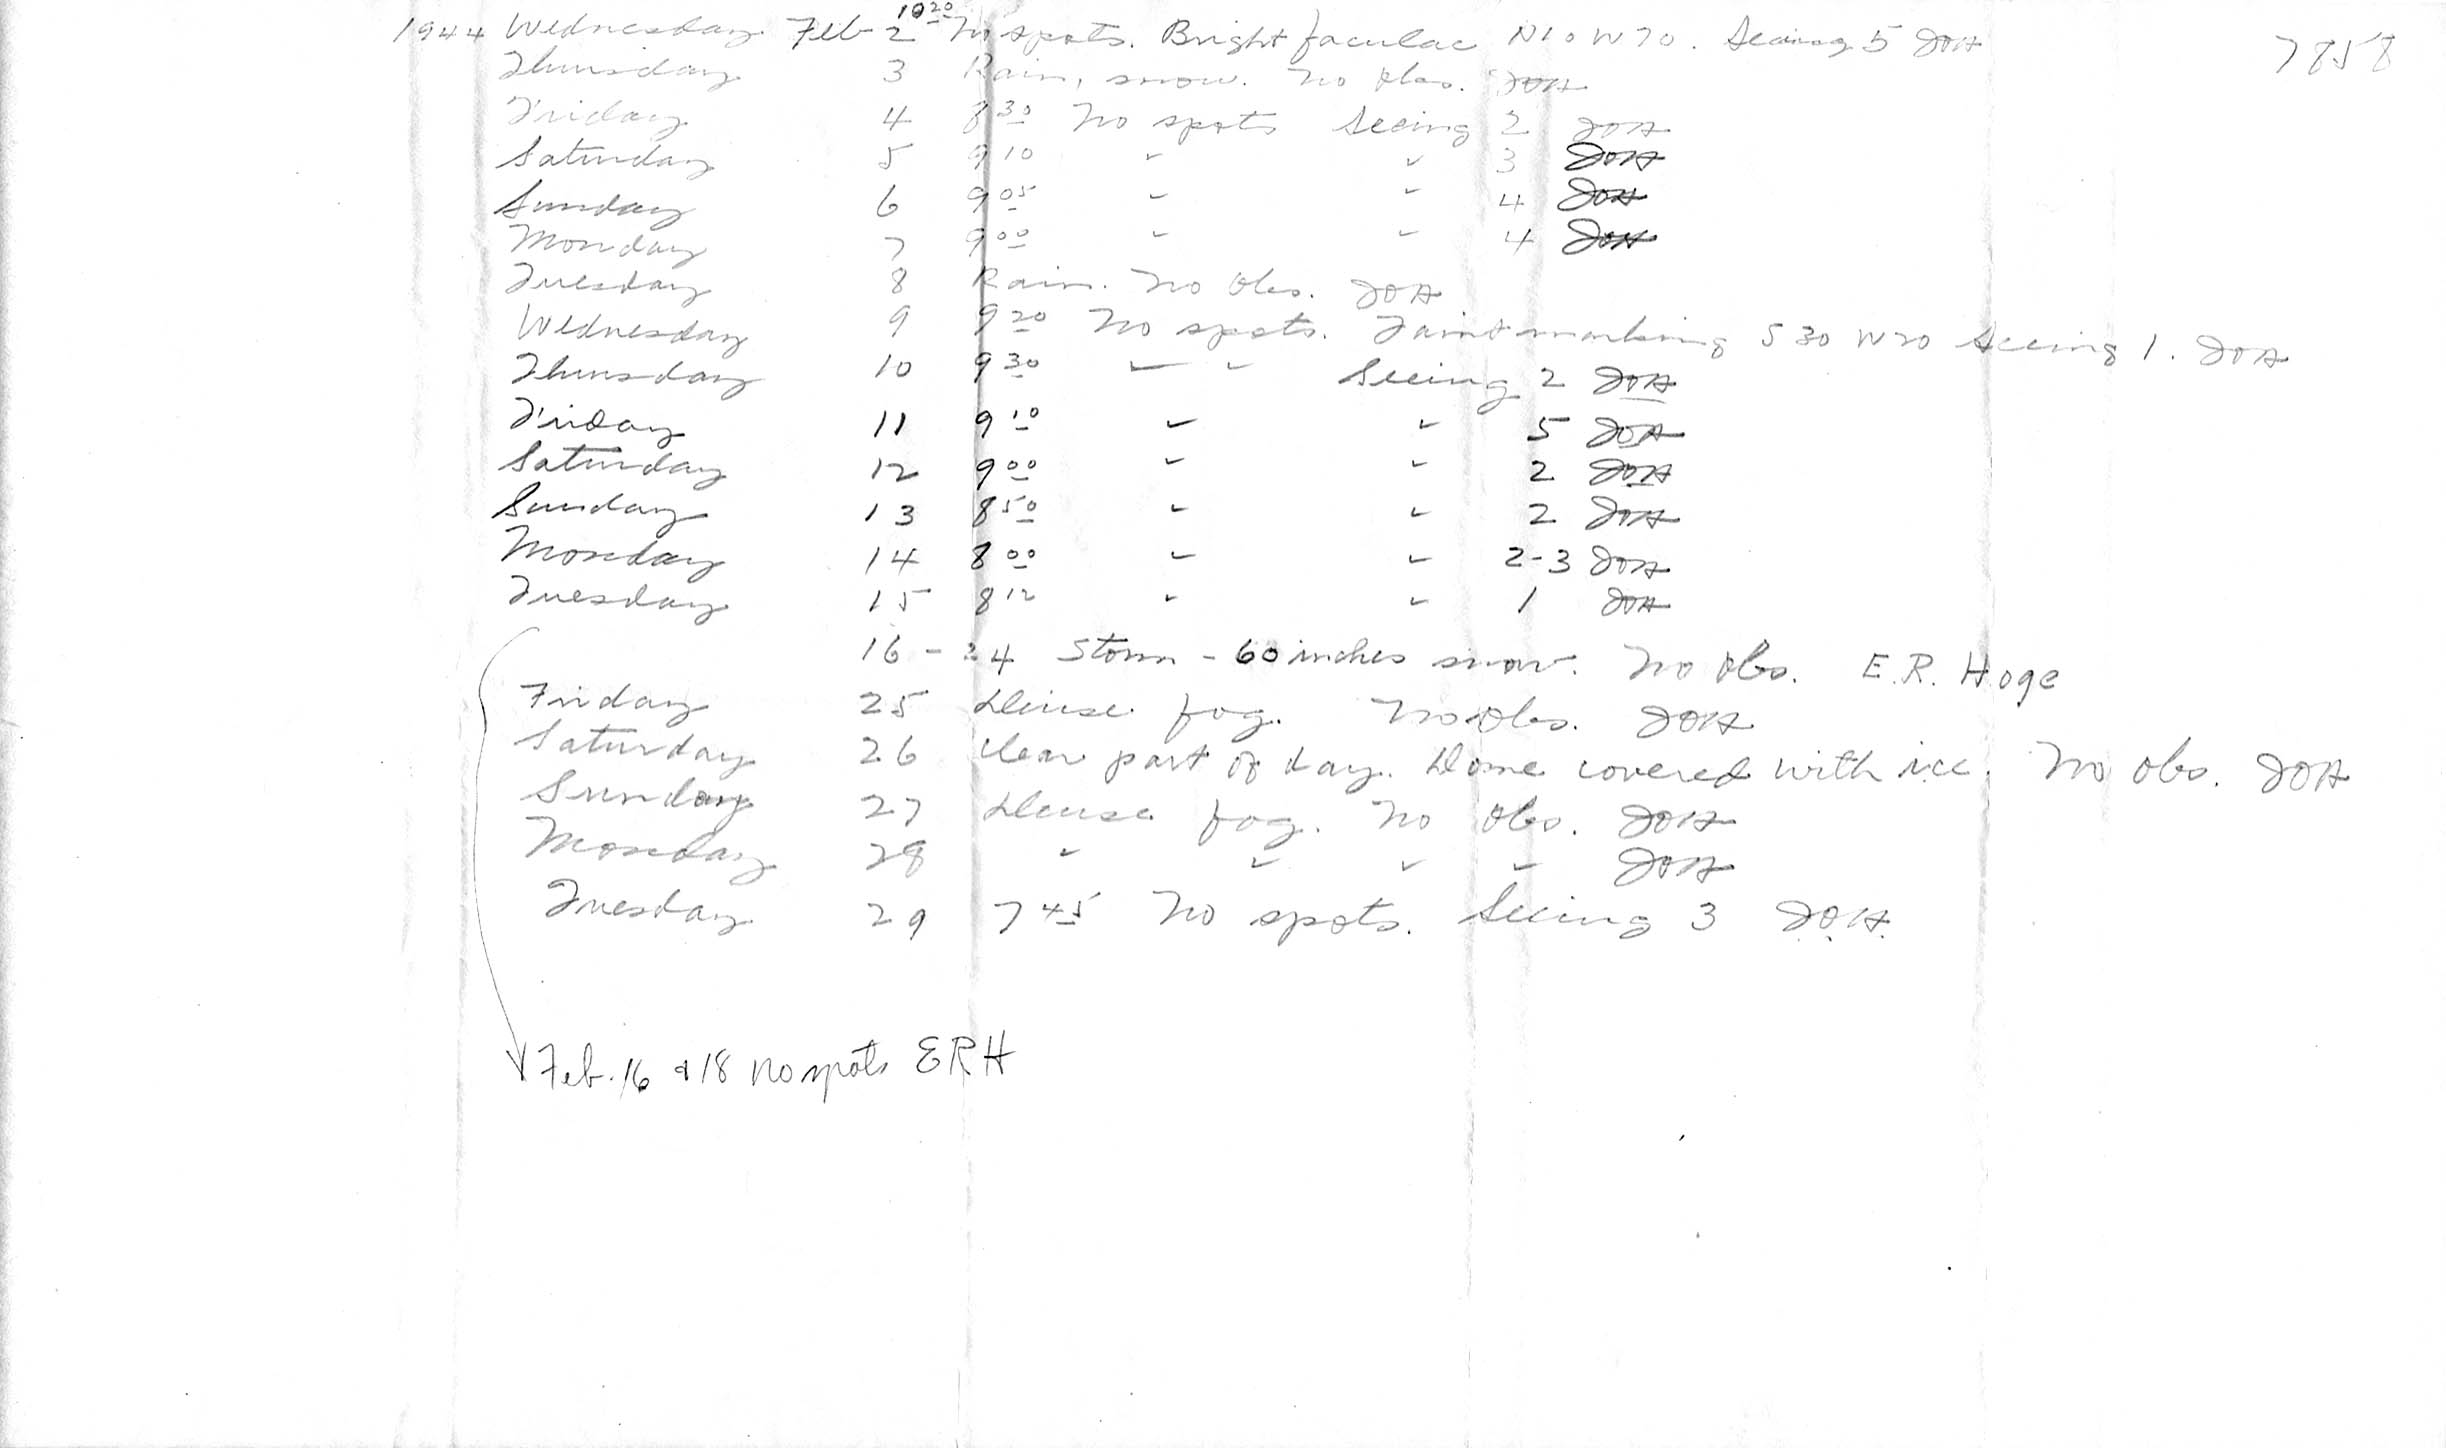 1944 Wednesday Feb 2 10 20 No spots. Bright faculae N10 W70. Seeing 5 JOH 7858
Thursday 3 Rain, snow. No obs. JOH
Friday 4 8 30 No spots Seeing 2 JOH
Saturday 5 9 10 " " 3 JOH
Sunday 6 9 05 " " 4 JOH
Monday 7 9 00 " " 4 JOH
Tuesday 8 Rain. No obs. JOH
Wednesday 9 9 20 No spots. Faint marking S30 W20 Seeing 1. JOH
Thursday 10 9 30 " " Seeing 2 JOH
Friday 11 9 10 " " 5 JOH
Saturday 12 9 00 " " 2 JOH
Sunday 13 8 50 " " 2 JOH
Monday 14 8 00 " " 2-3 JOH
Tuesday 15 8 12 " " 1 JOH
16 - 24 Storm - 60 inches snow. No obs. E.R. Hoge
Friday 25 Dense fog. No obs. JOH
Saturday 26 Clear part of day. Dome covered with ice. No obs. JOH
Sunday 27 Dense fog. No obs. JOH
Monday 28 " " " " JOH
Tuesday 29 7 45 No spots. Seeing 3 J.O.H.
Feb. 16 & 18 No spots ERH